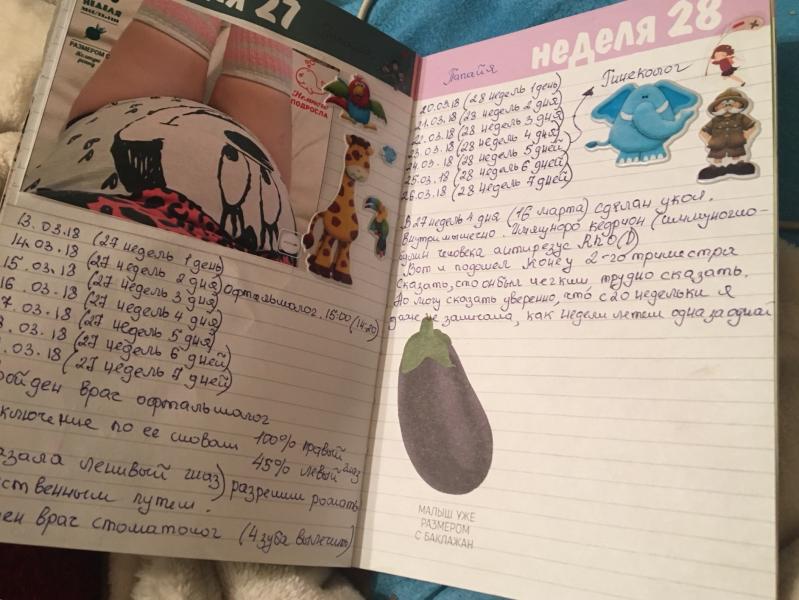 27
НЕДЕЛЯ
РАЗМЕРОМ С
Немного
ПОДРОСЛА
13.03.18 (27 недель 1 день)
14.03.18 (27 недель 2 дня)
15.03.18 (27 недель 3 дня) Офтальмолог. 15:00 (14:20)
16.03.18 (27 недель 4 дня)
7.03.18 (27 недель 5 дней)
.03.18 (27 недель 6 дней)
.03.18 (27 недель 7 дней)
ройден врач офтальмолог
ключение по ее словам 100% правый
45% левый глаз
азала ленивый глаз) разрешил рожать
ственным путем.
ен врач стоматолог (4 зуба вылечить)
неделя 28
Папайя
20.03.18 (28 недель 1 день)
21.03.18 (28 недель 2 дня)
22.03.18 (28 недель 3 дня)
23.03.18 (28 недель 4 дня)
24.03.18 (28 недель 5 дней)
25.03.18 (28 недель 6 дней)
26.03.18 (28 недель 7 дней)
Гинеколог
В 27 недель 4 дня (16 марта) сделан укол.
Внутримышечно. Иммуноро кедрион (иммуногло-
булин человека антирезус RhO(D)
Вот и подошел конец 2-го триместра
Сказать, что он был легким трудно сказать.
Но могу сказать уверенно, что с 20 недельки я
даже не замечала, как недели летели одна за одной
МАЛЫШ УЖЕ
РАЗМЕРОМ
С БАКЛАЖАН